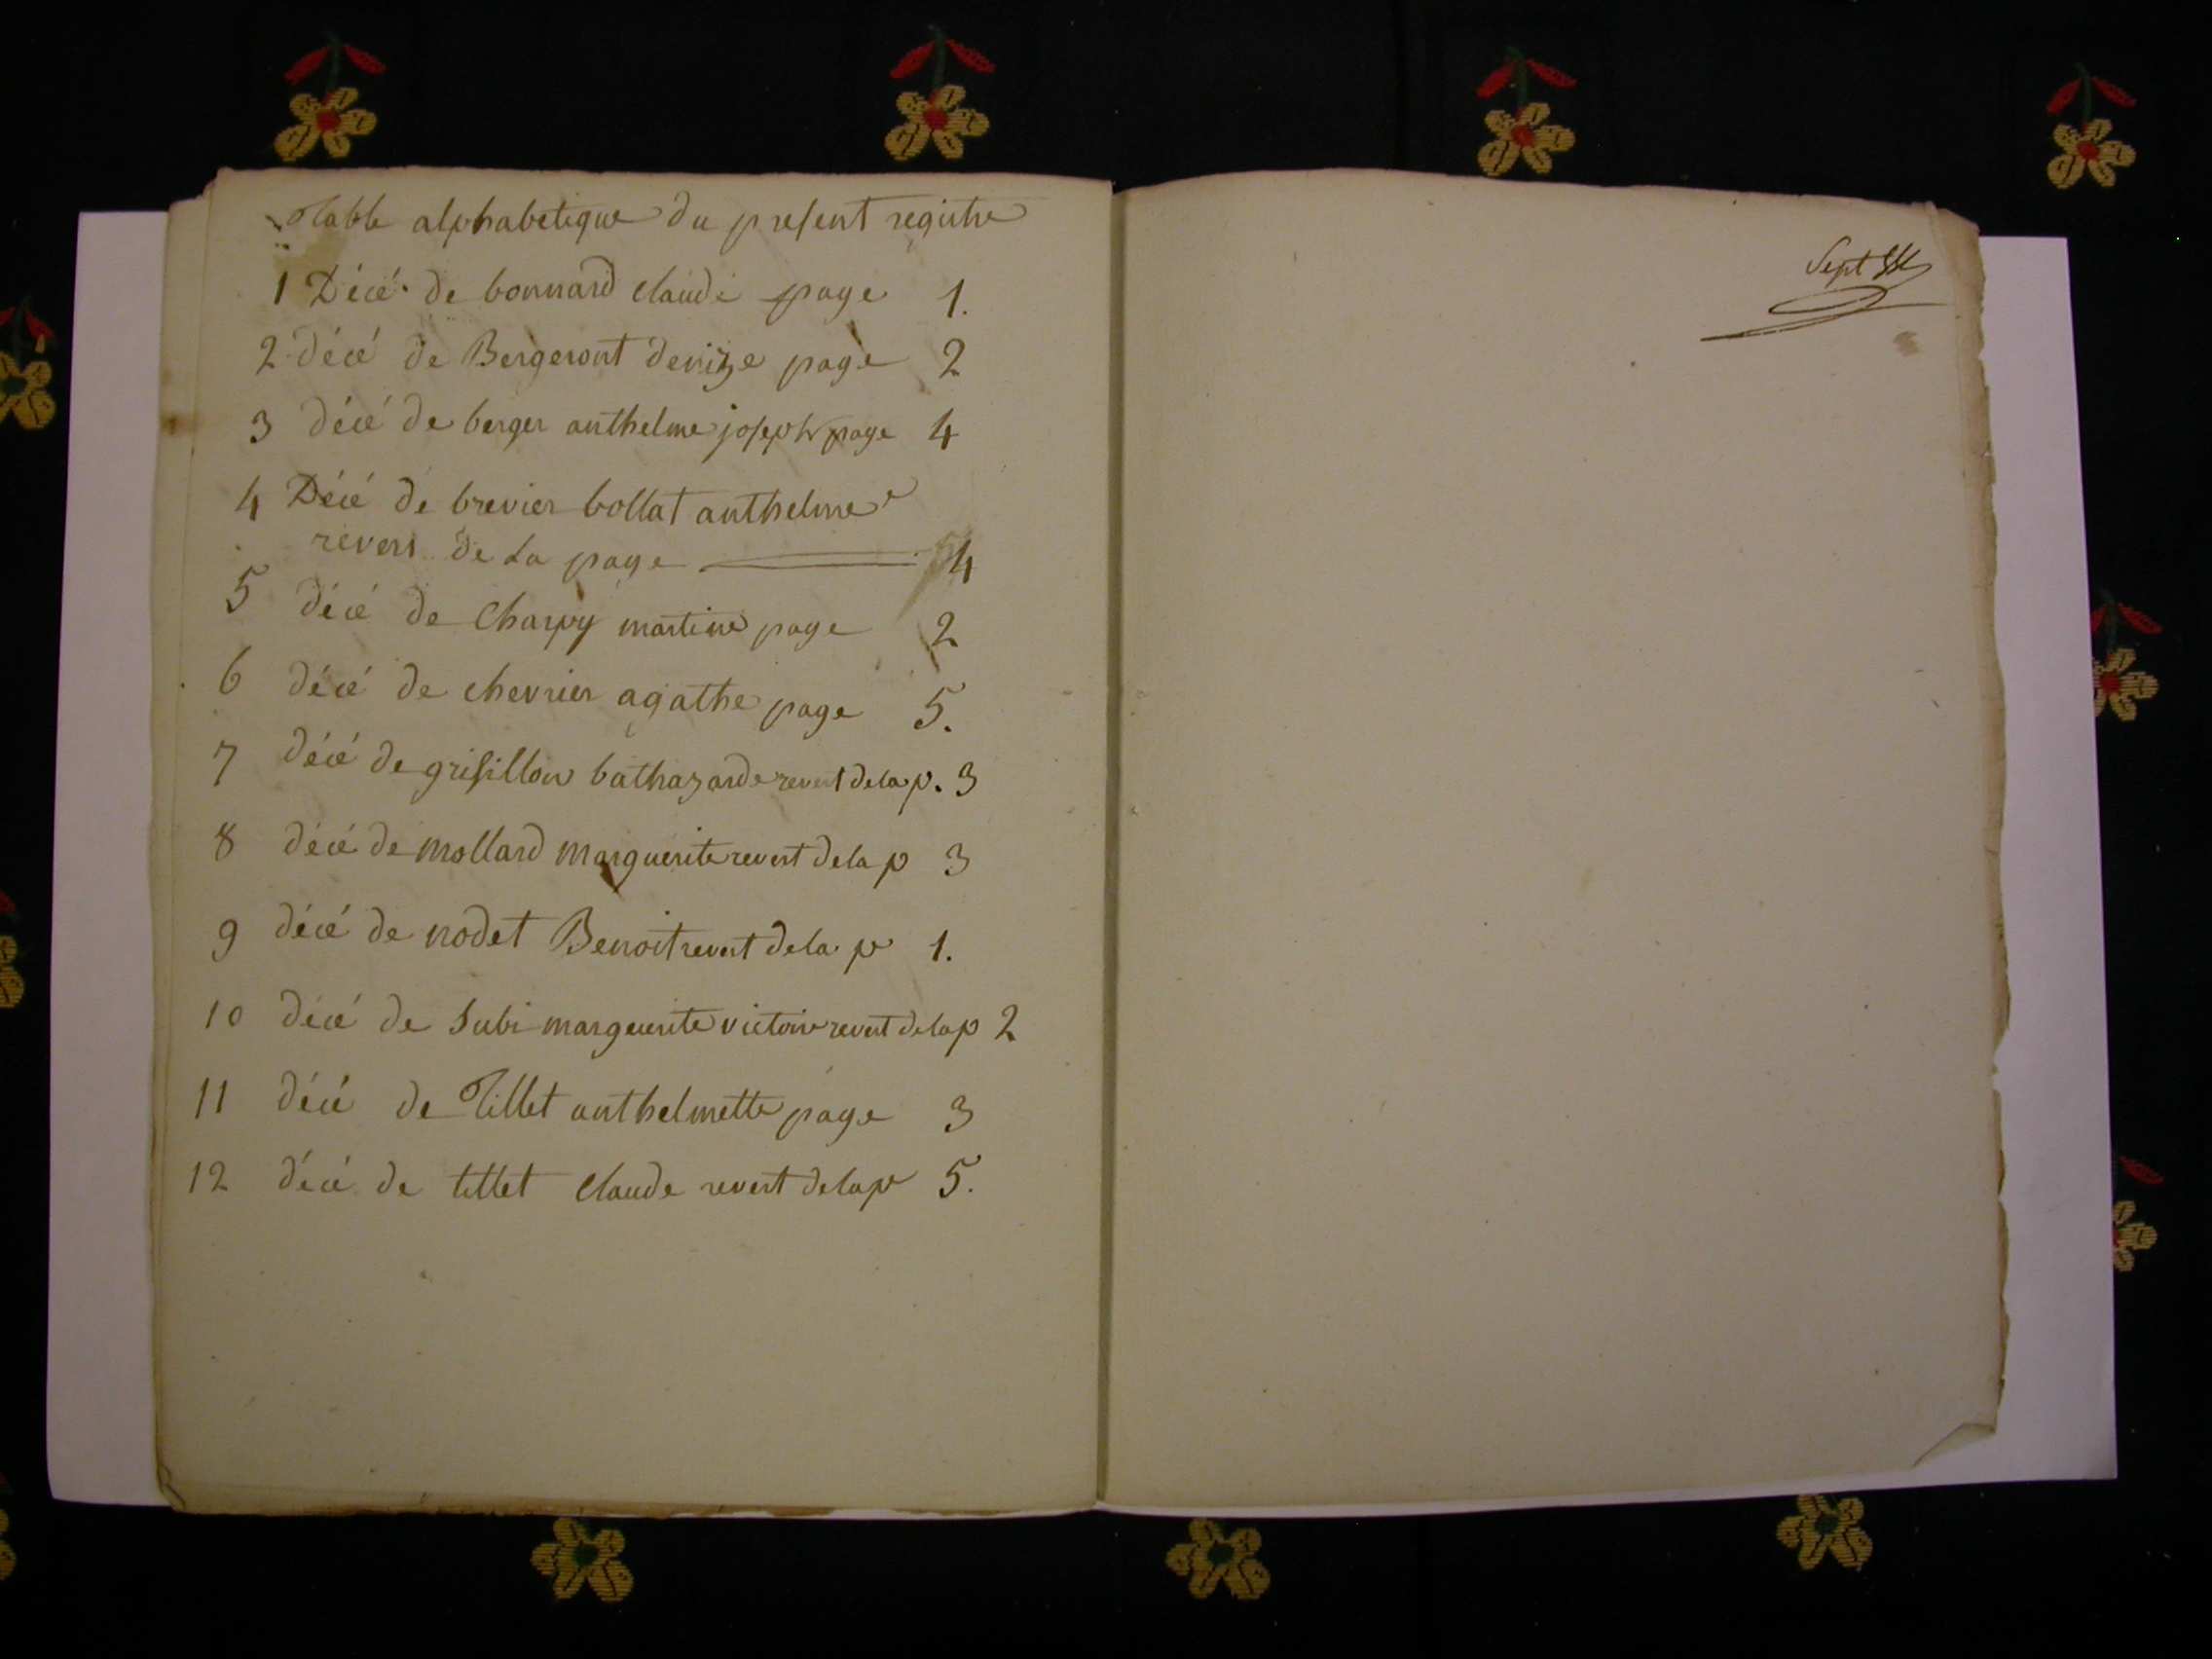 Table alphabetique du present registre
1 Décé de bonnard claude page 1.
2 décé de Bergeront denize page 2
3 décé de berger anthelme joseph page 4
4 Décé de brevier bollat anthelme
revers de La page 4
5 décé de Charpy martine page 2
6 décé de chevrier agathe page 5.
7 décé de grisillon bathazarde revert de la p. 3
8 décé de mollard marguerite revert de la p 3
9 décé de nodet Benoit revert de la p 1.
10 décé de Subi marguerite victoire revert de la p 2
11 décé de Tillet anthelmette page 3
12 décé de tillet claude revert de la p 5.
Sept